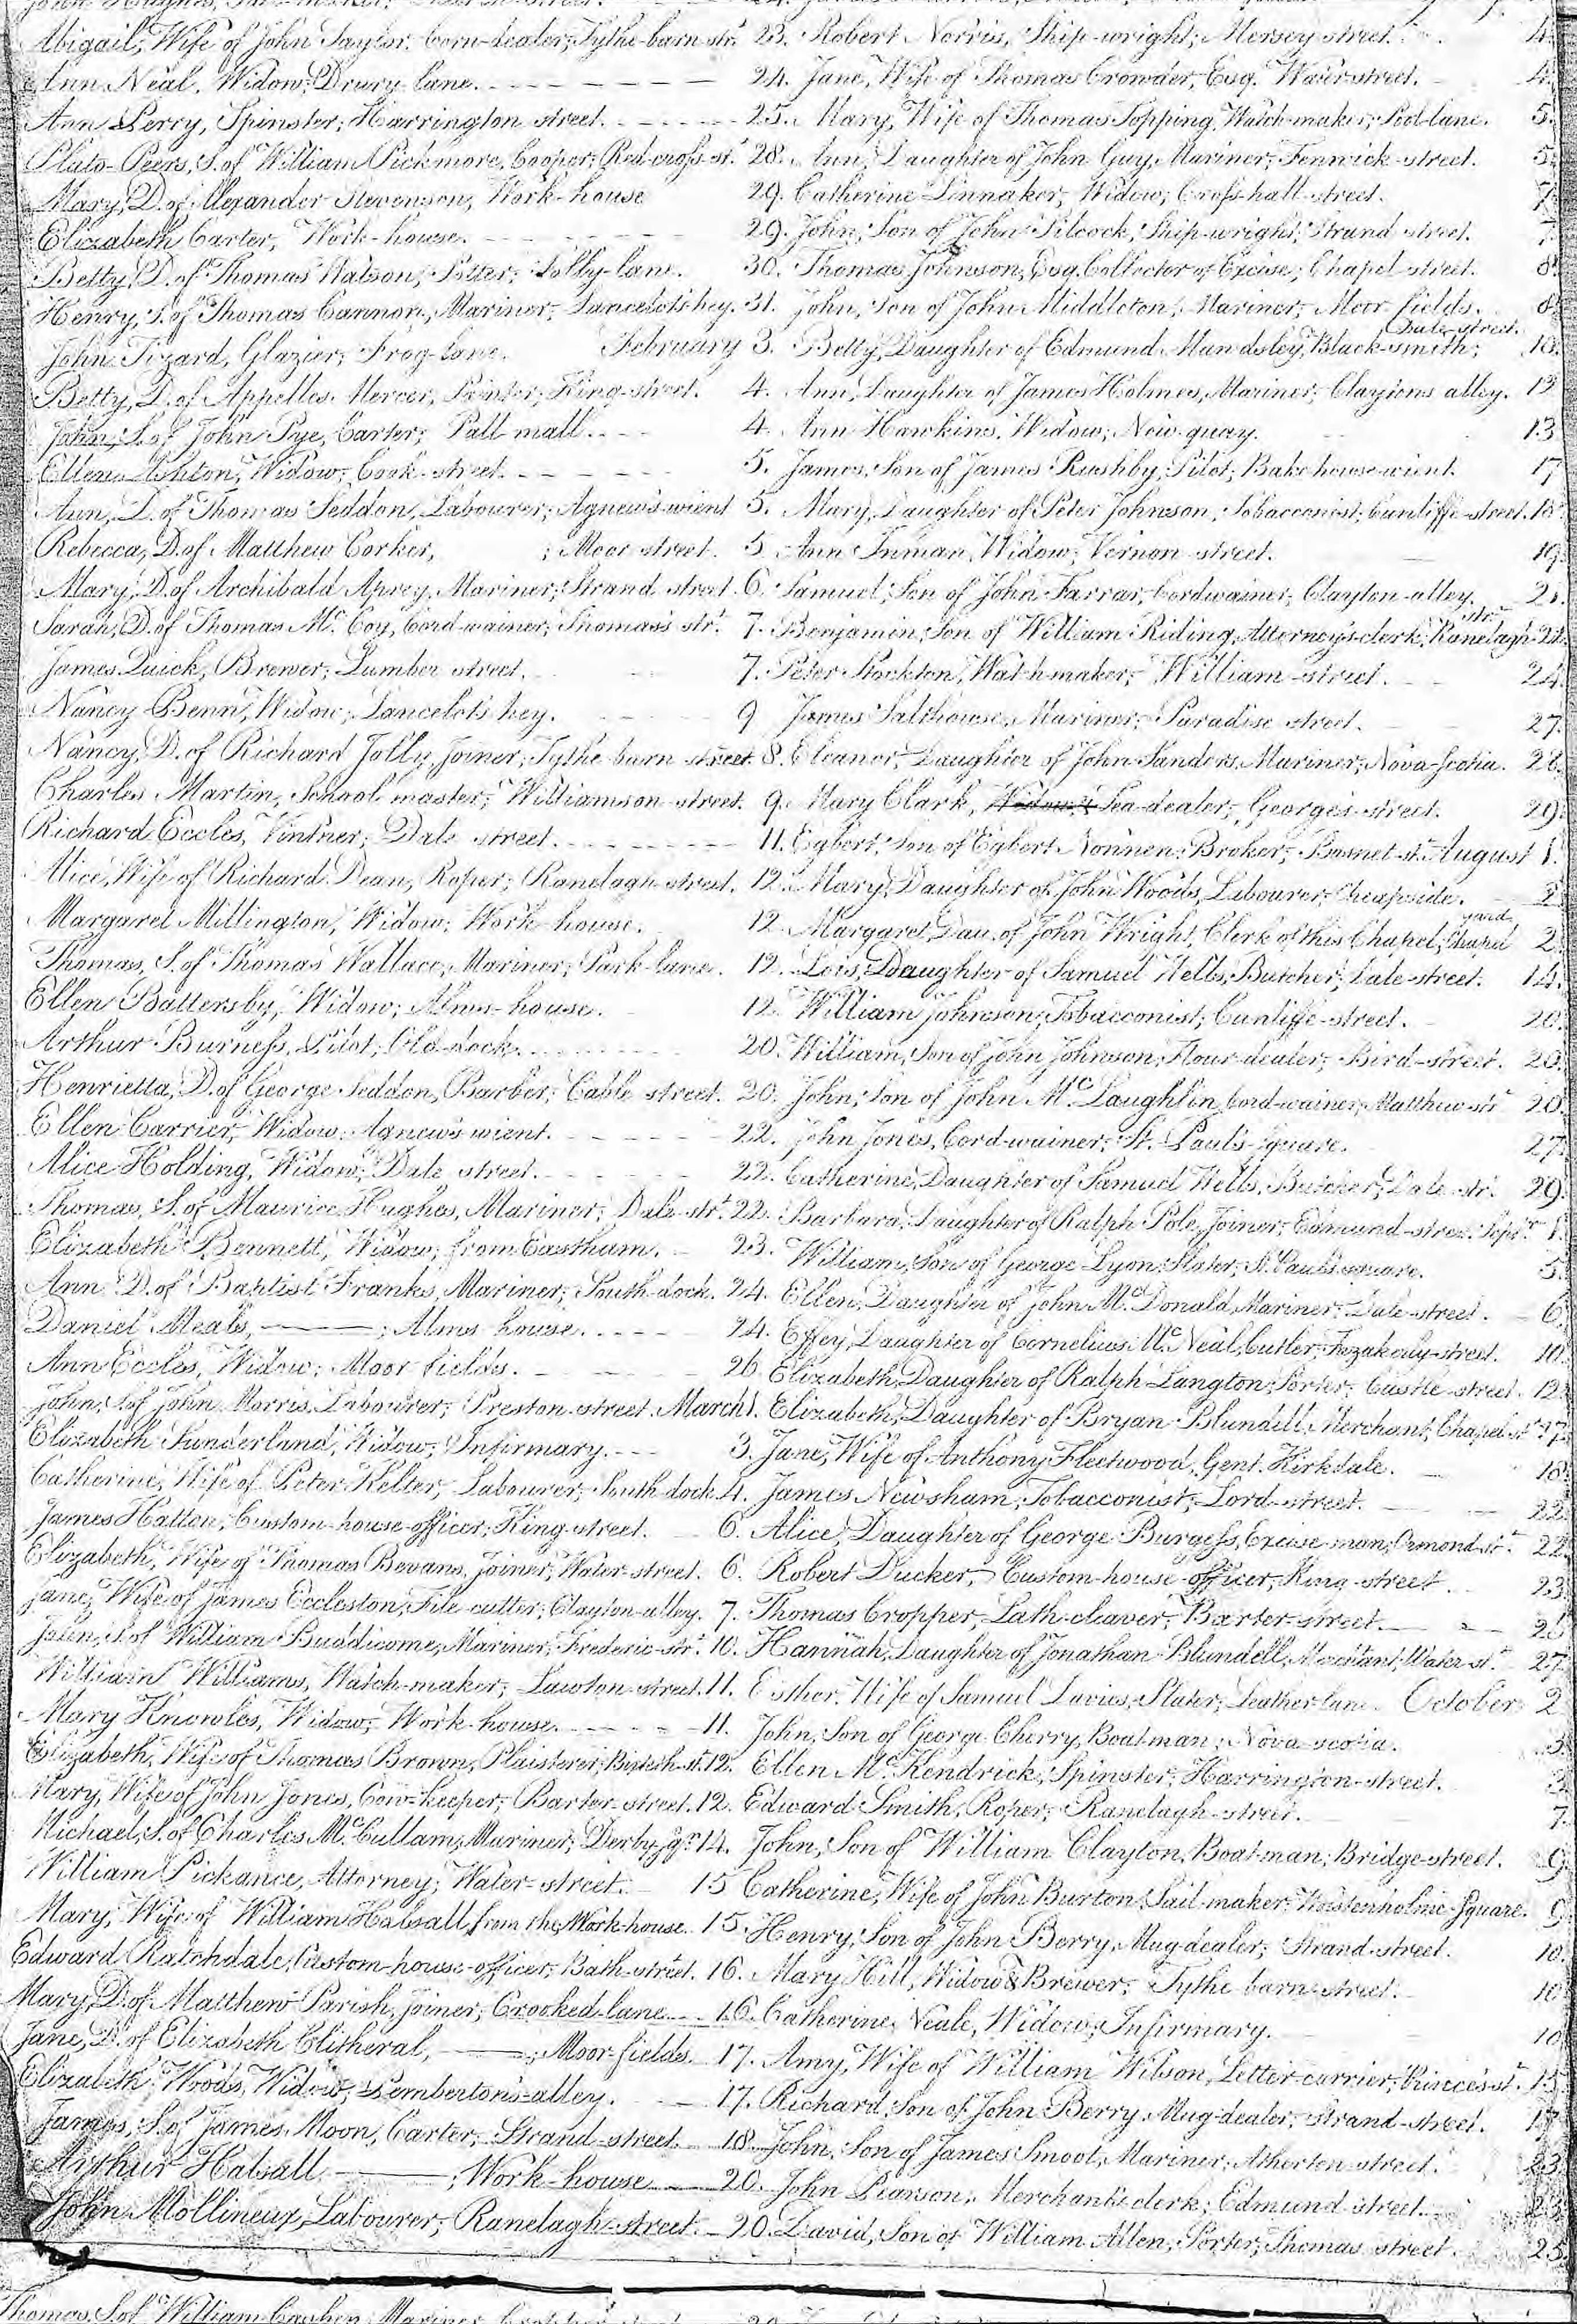 Abigail, Wife of John Taylor. Corn-dealer; Tythe-barn str. 23.
Ann Neal, Widow; Drury lane. 24.
Ann Perry, Spinster; Harrington street. 25.
Plato-Peers, S. of William Pickmore, Cooper; Red-cross-st. 28.
Mary, D. of Alexander Stevenson, Work-house 29.
Elizabeth Carter, Work-house. 29.
Betty, D. of Thomas Watson, Potter; Lolly-lane. 30.
Henry, S. of Thomas Cannon, Mariner; Lancelots hey. 31.
John Tizard, Glazier; Frog-lane. February 3.
Betty, D. of Appelles Mercer, Painter; King-street. 4.
John, S. of John Pye, Carter; Pall mall. 4.
Ellen Ashton, Widow; Cook-street. 5.
Ann, D. of Thomas Seddon, Labourer; Agnew's wient 5.
Rebecca, D. of Matthew Corker, ; Moor street. 5
Mary, D. of Archibald Aprey, Mariner; Strand street. 6.
Sarah, D. of Thomas Mc. Coy, Cord-wainer; Thomas's str. 7.
James Quick, Brewer; Lumber street. 7.
Nancy Benn, Widow; Lancelots hey. 9
Nancy, D. of Richard Jolly, Joiner; Tythe barn street. 8.
Charles Martin, School master; Williamson street. 9.
Richard Eccles, Vintner; Dale street. 11.
Alice, Wife of Richard Dean, Roper; Ranelagh street. 12.
Margaret Millington, Widow; Work-house. 12
Thomas, S. of Thomas Wallace, Mariner; Park-lane. 12.
Ellen Battersby, Widow; Alms-house. 12.
Arthur Burness, Pilot; Old dock. 20.
Henrietta, D. of George Seddon, Barber; Cable street. 20.
Ellen Carrier, Widow; Agnew's wient. 22.
Alice Holding, Widow; Dale street. 22.
Thomas, S. of Maurice Hughes, Mariner; Dale str. 22.
Elizabeth Bennett, Widow; from Eastham. 23.
Ann D. of Baptist Franks, Mariner; South-dock. 24.
Daniel Meals, ; Alms house. 24.
Ann Eccles, Widow; Moor fields. 26.
John, S. of John Morris, Labourer; Preston street. March 1.
Elizabeth Sunderland, Widow; Infirmary. 3.
Catherine, Wife of Peter Kelter, Labourer; South dock 4.
James Hatton, Custom-house-officer; King-street. 6.
Elizabeth, Wife of Thomas Bevans, Joiner; Water-street. 6.
Jane, Wife of James Eccleston, File-cutter; Clayton-alley. 7.
John, S. of William Buddicome, Mariner; Frederic-str. 10.
William Williams, Watch-maker; Lawton-street. 11.
Mary Knowles, Widow; Work-house. 11.
Elizabeth, Wife of Thomas Brown, Plaisterer; st. 12.
Mary, Wife of John Jones, Cow-keeper; Barter-street. 12.
Michael, S. of Charles Mc. Cullam, Mariner; Derby 14.
William Pickance, Attorney; Water-street. 15
Mary, Wife of William Halsall, from the Work-house. 15.
Edward Ratchdale, Custom-house-officer; Bath-street. 16.
Mary, D. of Matthew Parish, Joiner; Crooked-lane 16.
Jane, D. of Elizabeth Clitheral, ; Moor-fields. 17.
Elizabeth Woods, Widow; Pemberton's-alley. 17.
James, S. of James Moon, Carter; Strand-street. 18
Arthur Halsall, ; Work-house 20.
John Mollineux, Labourer; Ranelagh-street. 20.
Robert Norris, Ship-wright; Mersey street. 4.
Jane, Wife of Thomas Crowder, Esq. Water street. 4.
Mary, Wife of Thomas Topping, Watch-maker; Pool-lane. 5.
Ann, Daughter of John Guy, Mariner; Fenwick-street. 5.
Catherine Linnaker, Widow; Cross-hall-street. 7.
John, Son of John Silcock, Ship-wright; Strand street. 7.
Thomas Johnson, Esq. Collector of Excise; Chapel-street. 8.
John, Son of John Middleton, Mariner; Moor fields. 8.
Betty, Daughter of Edmund Mandsley, Black-smith; Dale-street. 10.
Ann, Daughter of James Holmes, Mariner; Claytons alley. 13
Ann Hawkins, Widow; New-quay. 13
James, Son of James Rushby, Pilot; Bakehouse-wient. 17
Mary, Daughter of Peter Johnson, Tobacconist; Cunliffe-street. 18.
Ann Inman, Widow; Vernon-street. 19.
Samuel, Son of John Farrar, Cordwainer; Clayton-alley. 21.
Benjamin, Son of William Riding, Attorney's-clerk; Ranelagh-str. 22.
Peter Stockton, Watch-maker; William-street. 24.
James Salthouse, Mariner; Paradise street. 27.
Eleanor, Daughter of John Sanders, Mariner; Nova-Scotia. 28.
Mary Clark, Widow; Tea-dealer; George's-street. 29.
Egbert, Son of Egbert Nonnen, Broker; Basnet-st. August 1.
Mary, Daughter of John Woods, Labourer; Cheapside. 2
Margaret, Dau. of John Wright, Clerk of this Chapel; Chapel yard 2.
Lois, Daughter of Samuel Wells, Butcher; Dale-street. 14.
William Johnson, Tobacconist; Cunliffe-street. 20.
William, Son of John Johnson, Flour-dealer; Bird-street. 20.
John, Son of John Mc. Laughlin, Cord-wainer; Matthew-str. 20.
John Jones, Cord-wainer; St. Paul's Square. 27.
Catherine, Daughter of Samuel Wells, Butcher; Dale-str. 29.
Barbara, Daughter of Ralph Pole, Joiner; Edmund-street. Sepr. 1.
William, Son of George Lyon, Slater; St. Paul's square. 5.
Ellen, Daughter of John Mc. Donald, Mariner; Dale-street. 6.
Effey, Daughter of Cornelius Mc. Neal, Cutler; Fazakerly-street. 10.
Elizabeth, Daughter of Ralph Langton, Porter; Castle-street. 12.
Elizabeth, Daughter of Bryan Blundell, Merchant; Chapel-st. 17.
Jane, Wife of Anthony Fleetwood, Gent. Kirkdale. 18.
James Newsham, Tobacconist; Lord-street. 22.
Alice, Daughter of George Burgess, Excise-man; Ormond-st. 22.
Robert Ducker, Custom-house-officer; King-street. 23
Thomas Cropper, Lath-cleaver; Barter-street.
Hannah, Daughter of Jonathan Blundell, Merchant; Water-st. 27
Esther, Wife of Samuel Davies, Slater; Leather lane. October 2
John, Son of George Cherry, Boatman; Nova-scotia. 3.
Ellen Mc. Kendrick, Spinster; Harrington-street. 3.
Edward Smith, Roper; Ranelagh-street. 7.
John, Son of William Clayton, Boat-man; Bridge-street. 9.
Catherine, Wife of John Burton, Sail-maker; Wolstenholme-Square. 9.
Henry, Son of John Berry, Mug-dealer; Strand-street. 10.
Mary Hill, Widow & Brewer; Tythe barn-street. 10
Catherine Neale, Widow; Infirmary. 10
Amy, Wife of William Wilson, Letter-carrier; Princes-st. 15.
Richard, Son of John Berry, Mug-dealer; Strand-street. 17.
John, Son of James Smoot, Mariner; Atherton-street. 23.
John Pearson, Merchant's clerk; Edmund-street. 23.
David, Son of William Allen, Porter; Thomas street. 25.